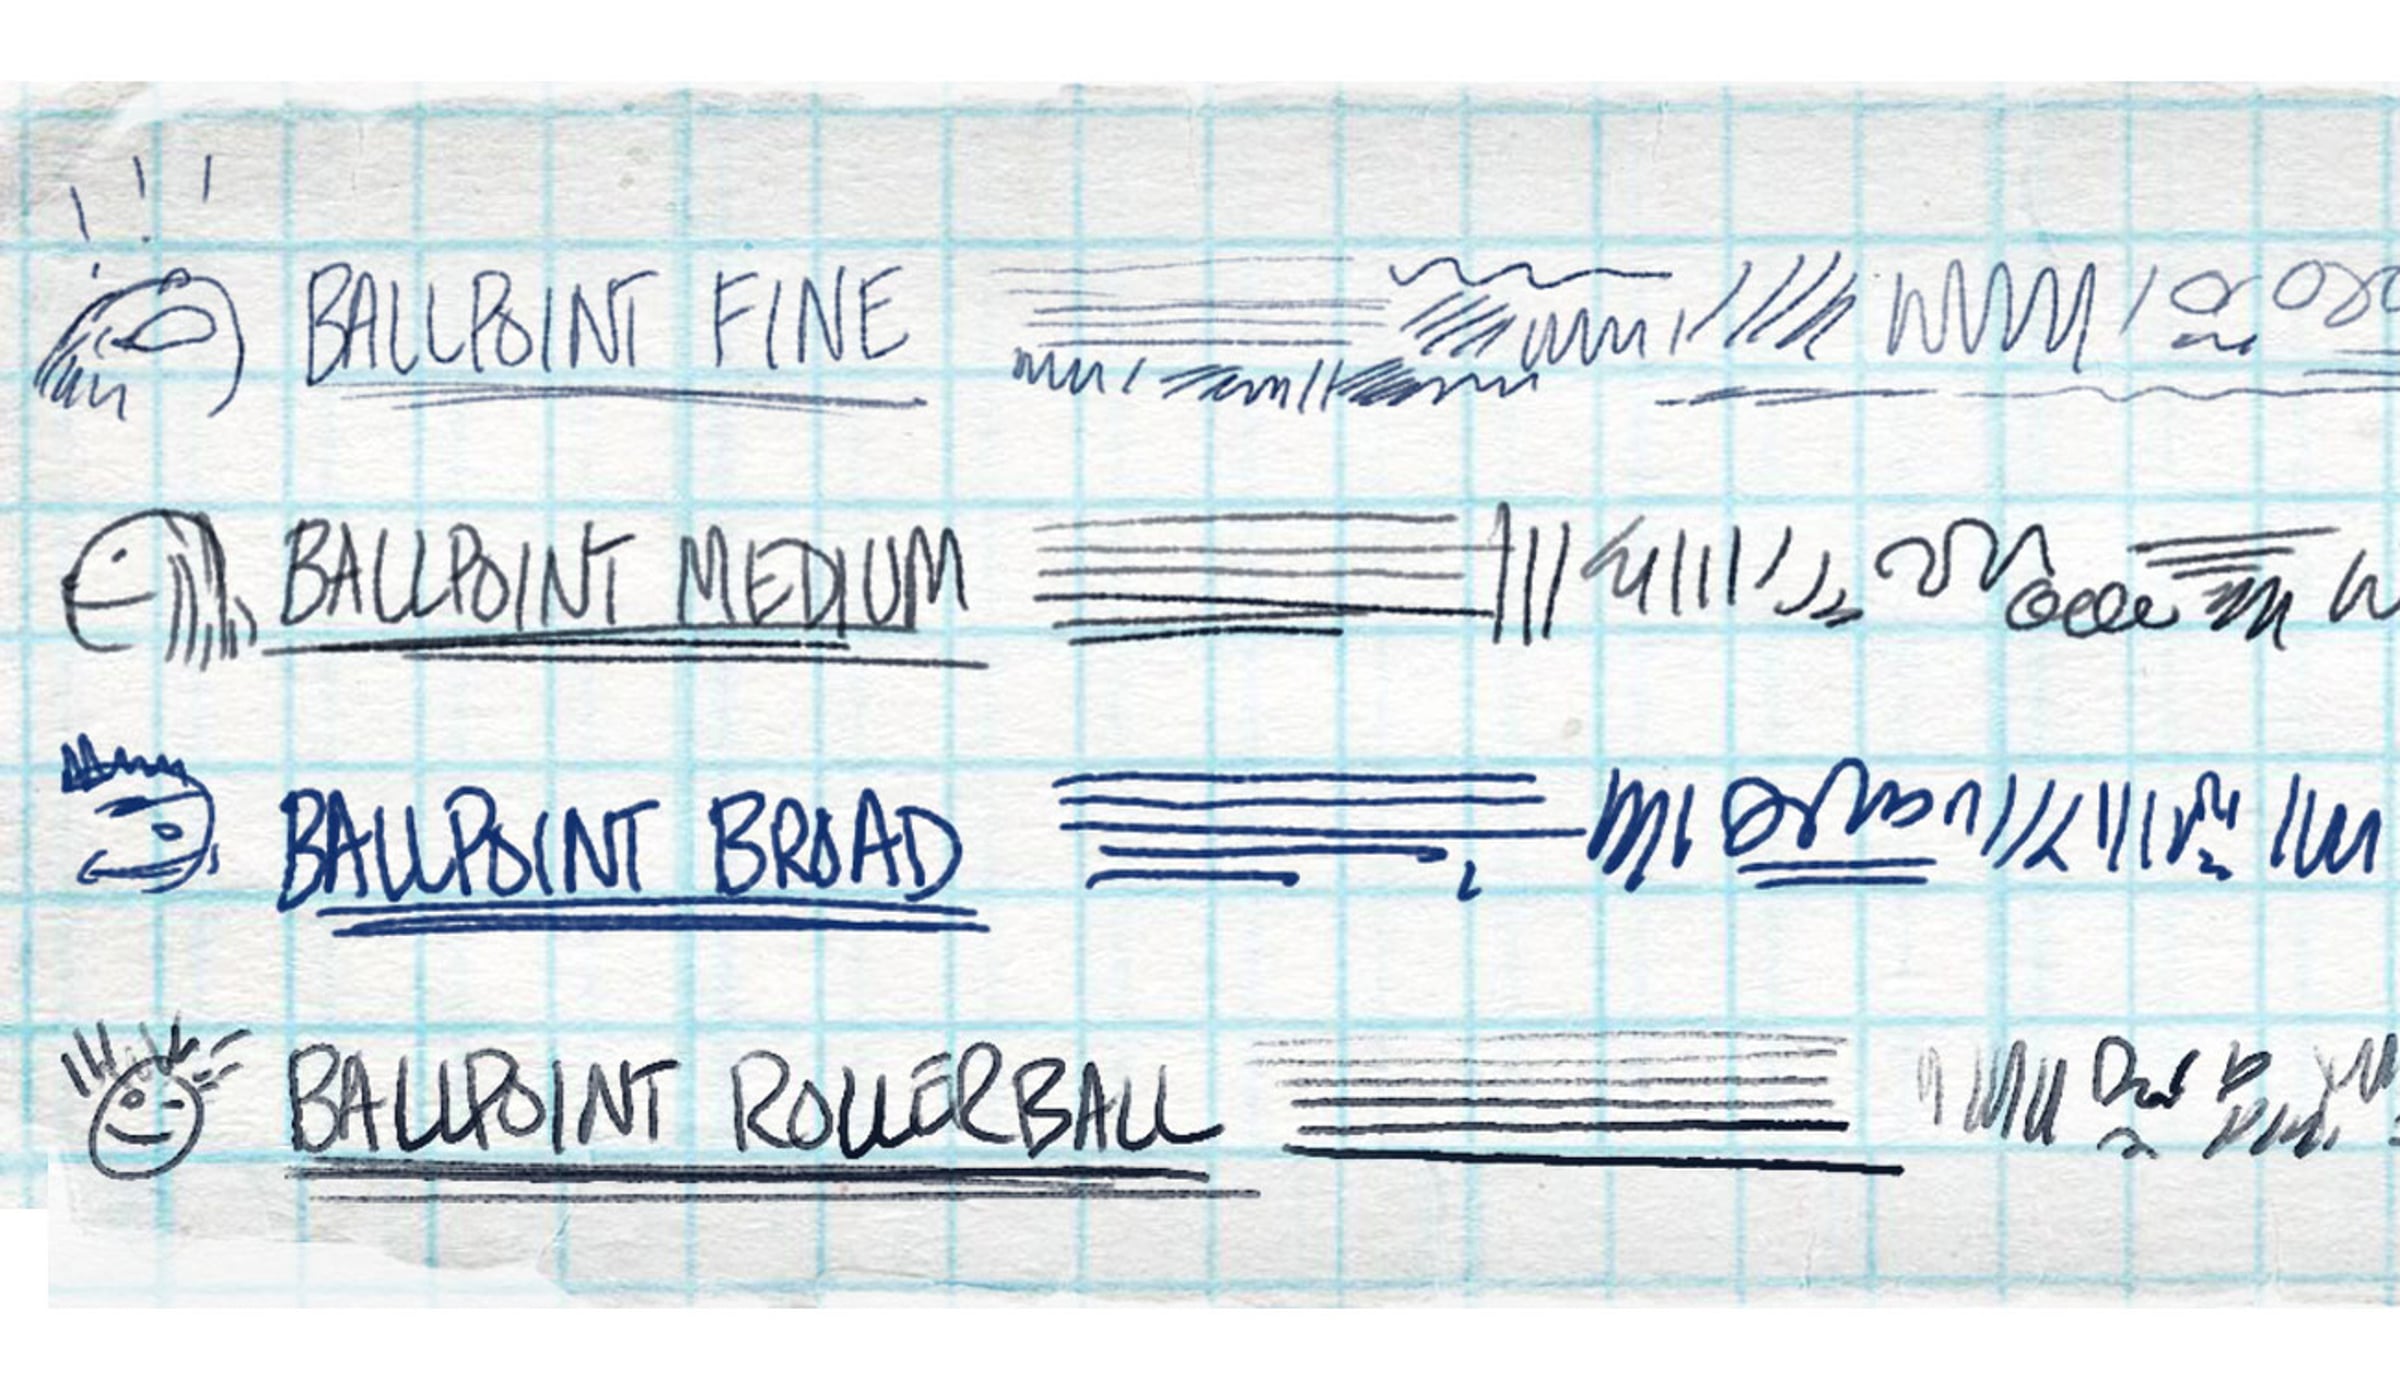 BALLPOINT FINE
BALLPOINT MEDIUM
BALLPOINT BROAD
BALLPOINT ROLLERBALL